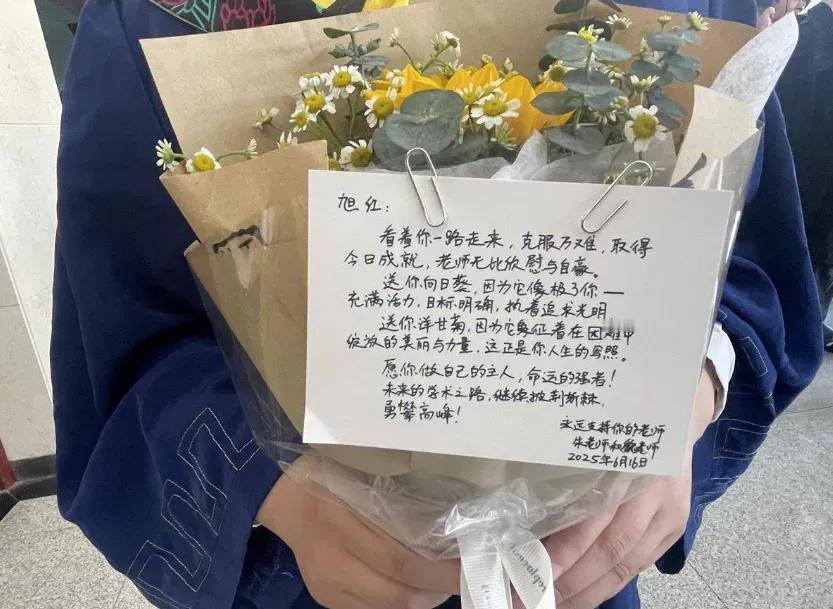 旭红：
看着你一路走来，克服万难，取得
今日成就，老师无比欣慰与自豪。
送你向日葵，因为它像极了你——
充满活力，目标明确，执着追求光明
送你洋甘菊，因为它象征着在困难中
绽放的美丽与力量，这正是你人生的写照。
愿你做自己的主人，命运的强者！
未来的学术之路，继续披荆斩棘，
勇攀高峰！
永远支持你的老师
朱老师和魏老师
2025年6月16日